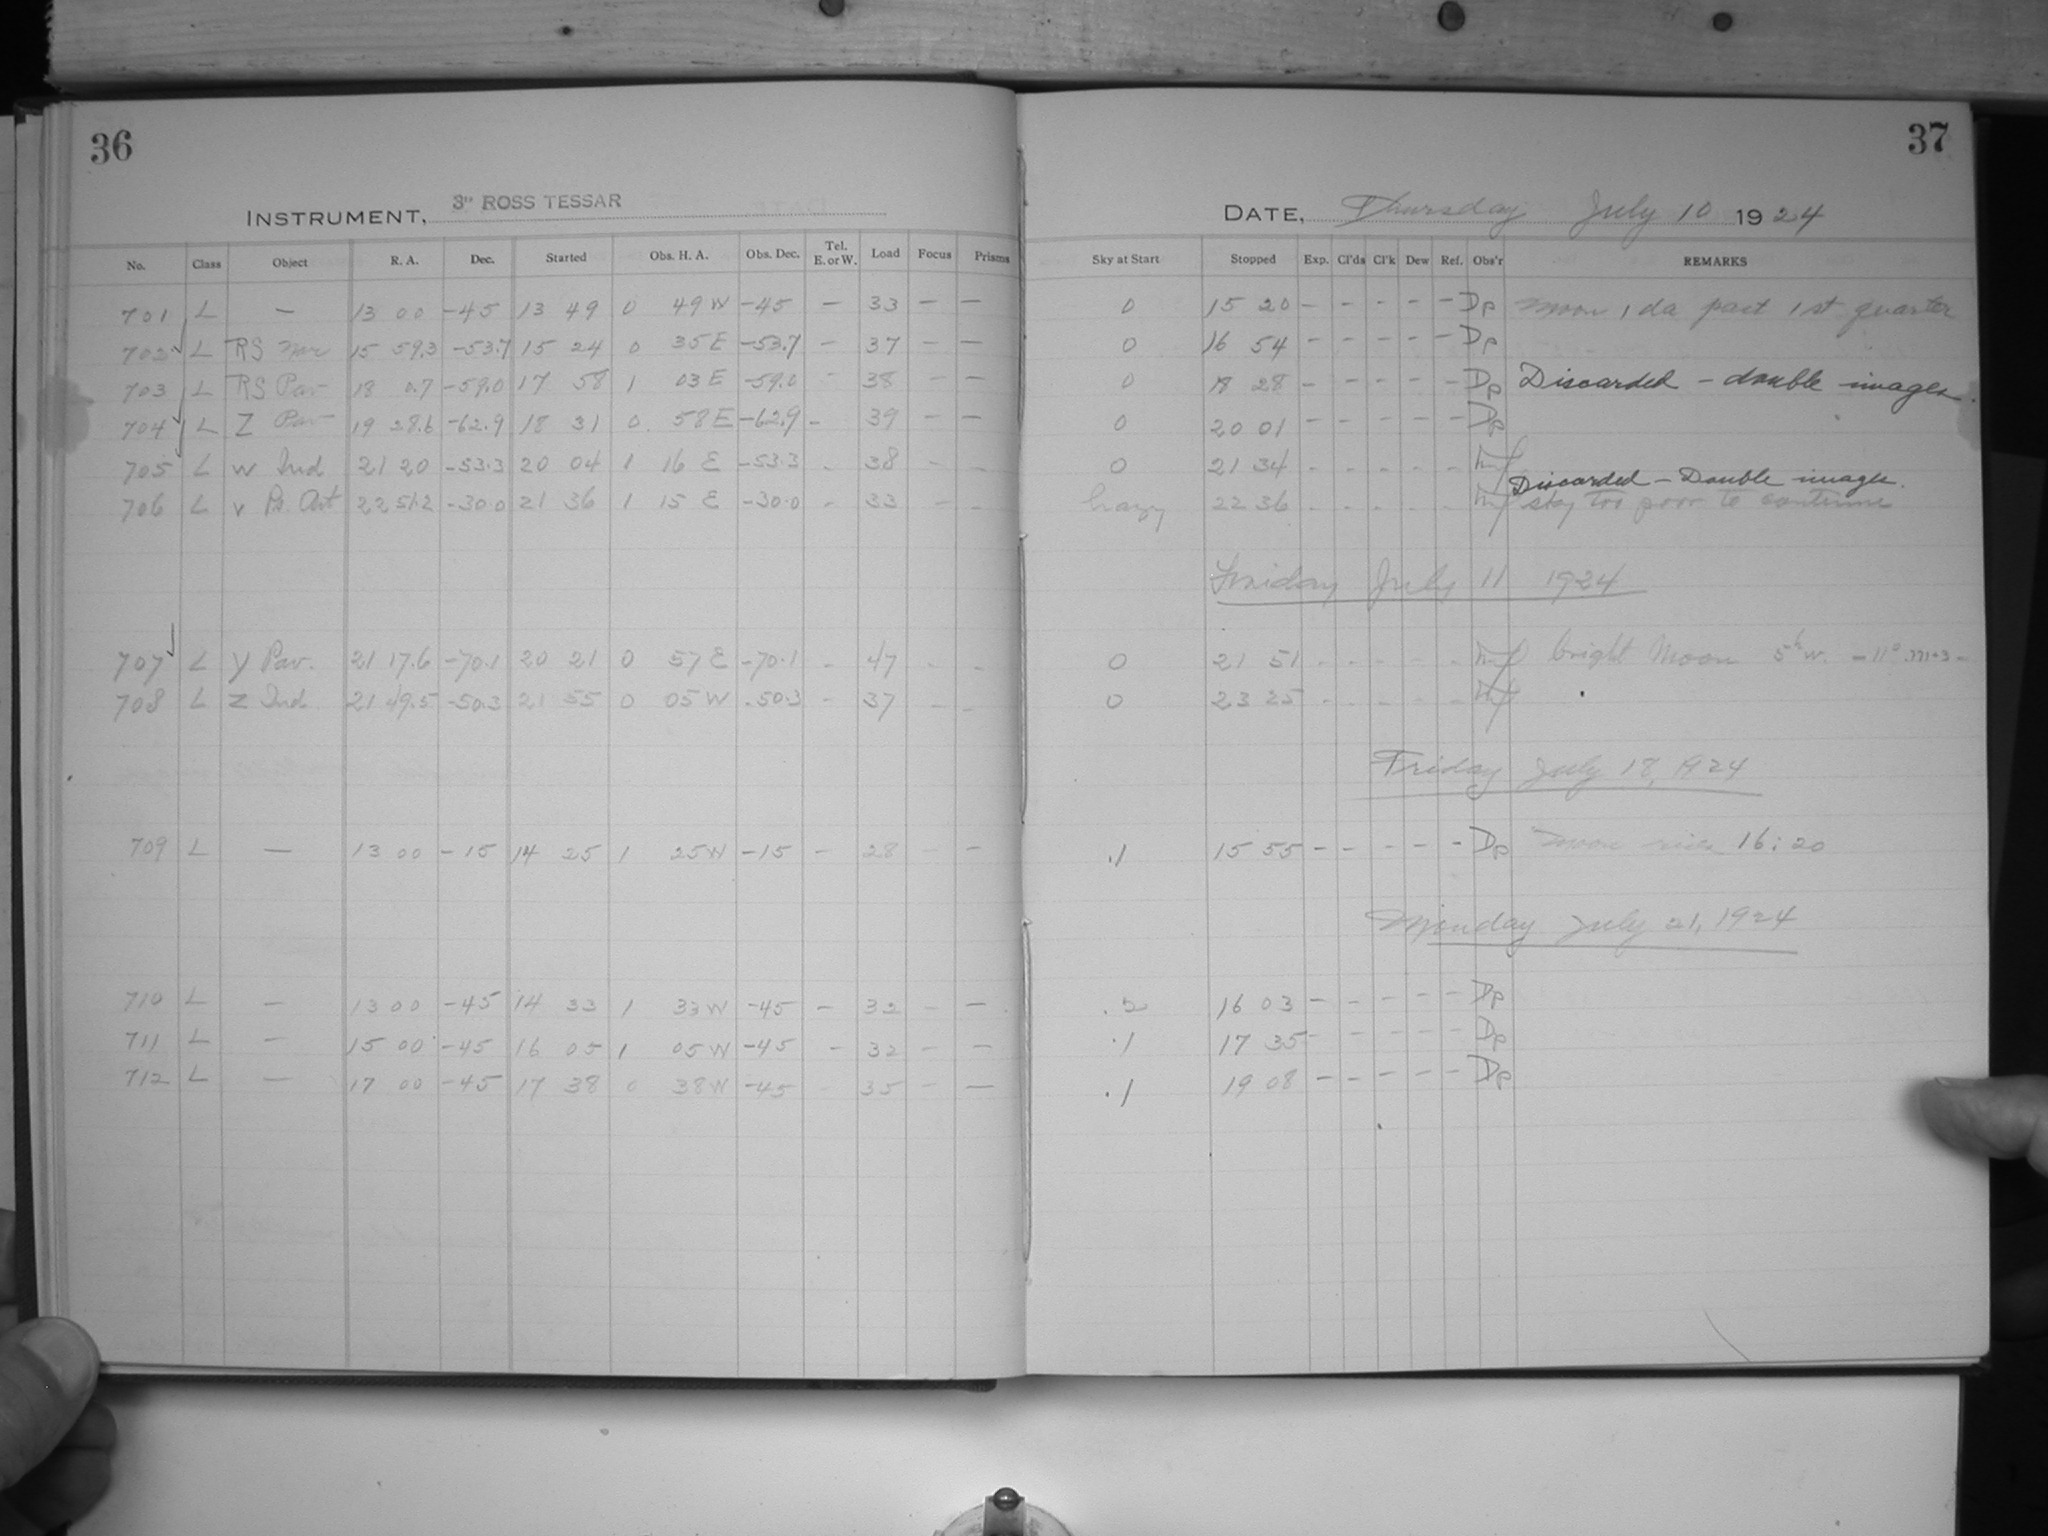 36
37
INSTRUMENT, 3" ROSS TESSAR
DATE, Thursday July 10 1924
No. Class Object R. A. Dec. Started Obs. H. A. Obs. Dec. Tel. E. or W. Load Focus Prisms Sky at Start Stopped Exp. Cl'ds Cl'k Dew Ref. Obs'r REMARKS
701 L — 13 00 -45 13 49 0 49 W -45 — 33 — — 0 15 20 — — — — — Dp Moon 1 da past 1st quarter
702 L RS Nor 15 59.3 -53.7 15 24 0 35 E -53.7 — 37 — — 0 16 54 — — — — — Dp
703 L RS Pav 18 0.7 -59.0 17 58 1 03 E -59.0 - 38 — — 0 18 28 — — — — — Dp Discarded — double images.
704 L Z Pav 19 28.6 -62.9 18 31 0 58 E -62.9 - 39 — — 0 20 01 — — — — — Dp
705 L W Ind 21 20 -53.3 20 04 1 16 E -53.3 - 38 - - 0 21 34 - - - - -
Discarded — Double images.
706 L v Ps. Aust 22 51.2 -30.0 21 36 1 15 E -30.0 - 33 - - hazy 22 36 - - - - - sky too poor to continue
Friday July 11 1924
707 L Y Pav. 21 17.6 -70.1 20 21 0 57 E -70.1 - 47 - - 0 21 51 - - - - - bright Moon 5h W. -11°
708 L Z Ind. 21 49.5 -50.3 21 55 0 05 W -50.3 - 37 - - 0 23 25 - - - - -
Friday July 18, 1924
709 L — 13 00 -15 14 25 1 25 W -15 — 28 — — .1 15 55 — — — — — Dp Moon rises 16:20
Monday July 21, 1924
710 L — 13 00 -45 14 33 1 33 W -45 — 32 — — .2 16 03 — — — — — Dp
711 L — 15 00 -45 16 05 1 05 W -45 — 32 — — .1 17 35 — — — — — Dp
712 L — 17 00 -45 17 38 0 38 W -45 - 35 — — .1 19 08 — — — — — Dp